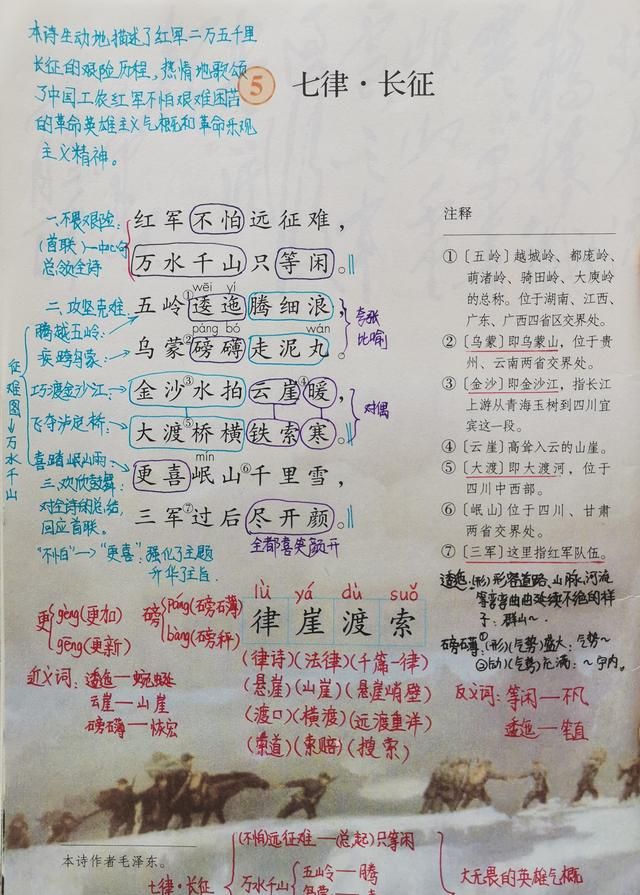 本诗生动地描述了红军二万五千里
长征的艰险历程,热情地歌颂
了中国工农红军不怕艰难困苦
的革命英雄主义气概和革命乐观
主义精神。
5 七律·长征
一.不畏艰险:
(首联)一中心句
总领全诗
红军不怕远征难,
万水千山只等闲。
二.攻坚克难:
腾越五岭:
疾跨乌蒙:
巧渡金沙江:
飞夺泸定桥:
喜踏岷山雨:
征难图→万水千山
wēi yí
五岭①逶迤腾细浪,
páng bó wán
乌蒙②磅礴走泥丸。
夸张
比喻
金沙③水拍云崖④暖,
大渡⑤桥横铁索寒。
对偶
mín
更喜岷山⑥千里雪,
三军⑦过后尽开颜。
全都喜笑颜开
三.欢欣鼓舞:
对全诗的总结,
回应首联。
"不怕"→"更喜":强化了主题
升华了主旨
注释
①〔五岭〕越城岭、都庞岭、
萌渚岭、骑田岭、大庾岭
的总称。位于湖南、江西、
广东、广西四省区交界处。
②〔乌蒙〕即乌蒙山,位于贵
州、云南两省交界处。
③〔金沙〕即金沙江,指长江
上游从青海玉树到四川宜
宾这一段。
④〔云崖〕高耸入云的山崖。
⑤〔大渡〕即大渡河,位于
四川中西部。
⑥〔岷山〕位于四川、甘肃
两省交界处。
⑦〔三军〕这里指红军队伍。
逶迤:(形)形容道路、山脉、河流
等弯弯曲曲延续不绝的样
子:群山~
磅礴:①(形)(气势)盛大:气势~
②(动)(气势)充满:~宇内。
更 gèng(更加)
gēng(更新)
磅 páng(磅礴)
bàng(磅秤)
lǜ yá dù suǒ
律崖渡索
(律诗)(法律)(千篇一律)
(悬崖)(山崖)(悬崖峭壁)
(渡口)(横渡)(远渡重洋)
(索道)(索赔)(搜索)
近义词:逶迤—蜿蜒
云崖—山崖
磅礴—恢宏
反义词:等闲—不凡
逶迤—笔直
本诗作者毛泽东。
七律·长征
(不怕)远征难—(总起)只等闲
万水千山
五岭—腾
大无畏的英雄气概